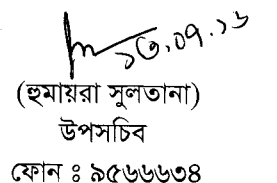 ১৩.০৭.১৬
(হুমায়রা সুলতানা)
উপসচিব
ফোন ঃ ৯৫৬৬৬৩৪